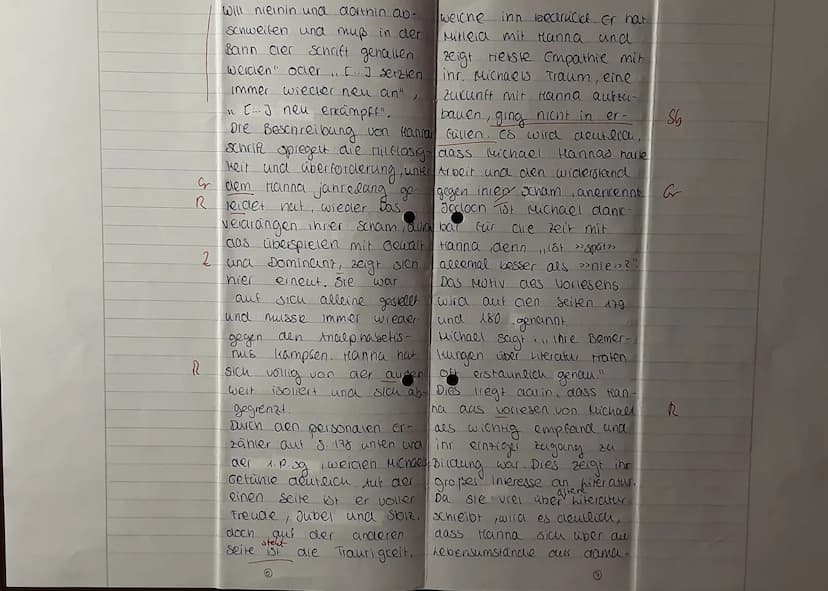 will hierhin und dorthin ab-
schweifen und muß in der
Bahn der Schrift gehalten
werden" oder „[...] setzten
immer wieder neu an",
„[...] neu erkämpft".
Die Beschreibung von Hannas
Schrift spiegelt die Hilflosig-
keit und Überforderung, unter
Gr dem Hanna jahrelang ge-
R leidet hat, wieder. Das
Verdrängen ihrer Scham, durch
das Überspielen mit Gewalt
Z und Dominanz, zeigt sich
hier erneut. Sie war
auf sich alleine gestellt
und musste immer wieder
gegen den Analphabetis-
mus kämpfen. Hanna hat
R sich völlig von der außen
welt isoliert und sich ab-
gegrenzt.
Durch den personalen Er-
zähler auf S. 178 unten und
der 1.P.sg, werden Michaels
Gefühle deutlich. Auf der
einen Seite ist er voller
Freude, Jubel und Stolz,
doch auf der anderen
steht
Seite ist die Traurigkeit,
6
welche ihn bedrückt. Er hat
Mitleid mit Hanna und
zeigt tiefste Empathie mit
ihr. Michaels Traum, eine
Zukunft mit Hanna aufzu-
bauen, ging nicht in er- Sb
füllen. Es wird deutlich,
dass Michael Hannas harte
Arbeit und den Widerstand
gegen ihrer Scham, anerkennt. Gr
Jedoch ist Michael dank-
bar für die Zeit mit
Hanna, denn „ist »spät«
allemal besser als »nie«?"
Das Motiv des Vorlesens
wird auf den Seiten 179
und 180 genannt.
Michael sagt: „Ihre Bemer-
kungen über Literatur trafen
oft erstaunlich genau."
Dies liegt darin, dass Han-
na das vorlesen von Michael R
als wichtig empfand und
ihr einziger Zugang zu
Bildung war. Dies zeigt ihr
großes Interesse an Literatur.
ältere
Da sie viel über Literatur
schreibt, wird es deutlich,
dass Hanna sich über die
Lebensumstände der dama-
7